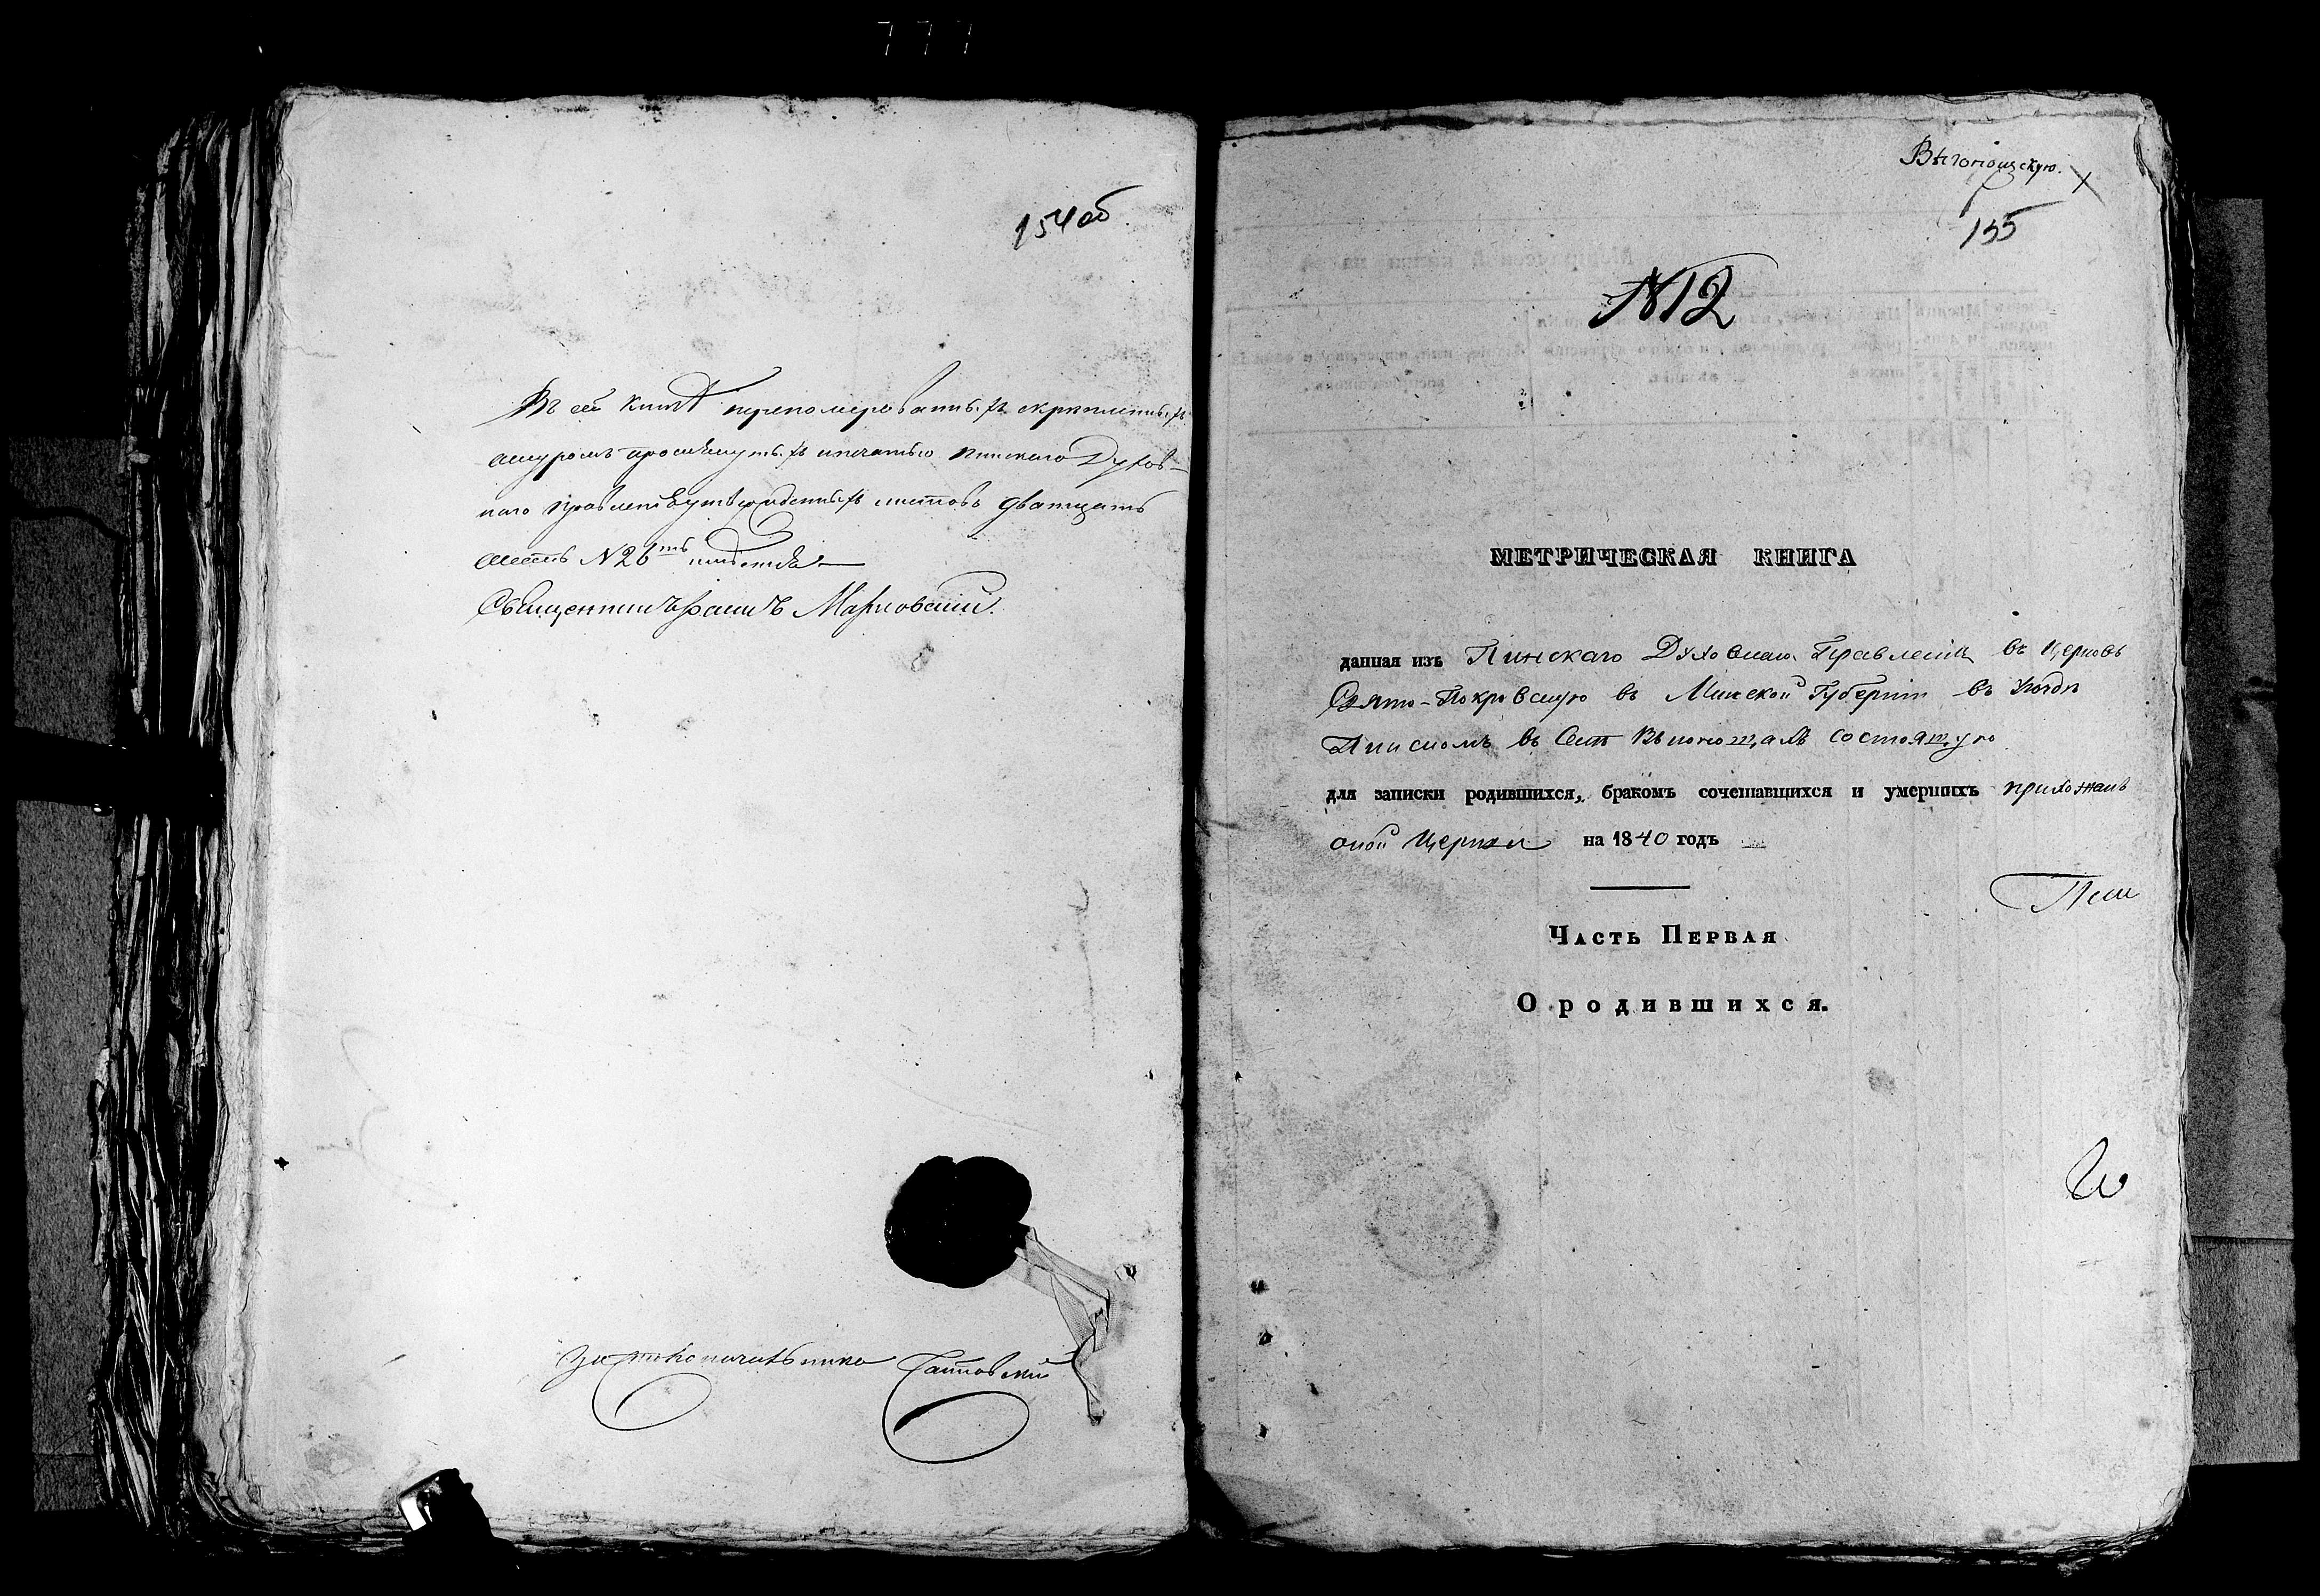 777
154 об
Въ сей книгѣ перепомерованныхъ скрепленныхъ
шнуромъ просѣкнутыхъ и печатью Пинскаго Духов-
наго Правленія утвержденныхъ листовъ дватцать
шесть N 26ть
Священникъ Марковскій.
Столоначальника
Выгонощскую.
155
N12
МЕТРИЧЕСКАЯ КНИГА
данная изъ Пинскаго Духовнаго Правленія въ церковь
Свято-Покровскую въ Минской Губерніи въ уѣздѣ
Пинскомъ въ Селѣ Выгонощахъ состоящую
для записки родившихся, бракомъ сочетавшихся и умершихъ прихожанъ
оной Церкви на 1840 годъ
Часть Первая
О родившихся.